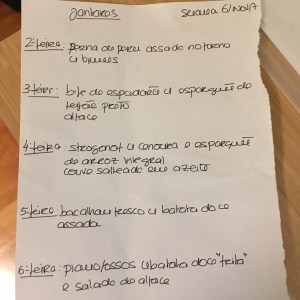 jantares semana 6/Nov17
2ª feira: perna de peru assada no forno
c/ brocos
3ª feira: bife de espadarte c/ esparguete de
feijão preto
alface
4ª feira: strogonof c/ cenoura e esparguete
de arroz integral
couve salteada em azeite
5ª feira: bacalhau fresco c/ batata doce
assada
6ª feira: c/ batata doce "frita"
e salada de alface